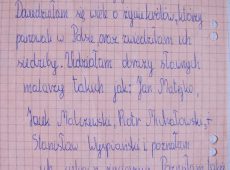 Dowiedziałam się wiele o życiu królów, którzy
panowali w Polsce oraz zwiedziłam ich
siedziby. Widziałam obrazy słownych
malarzy takich jak: Jan Matejko,
Jacek Malczewski, Piotr Michałowski,
Stanisław Wyspiański i poznałam